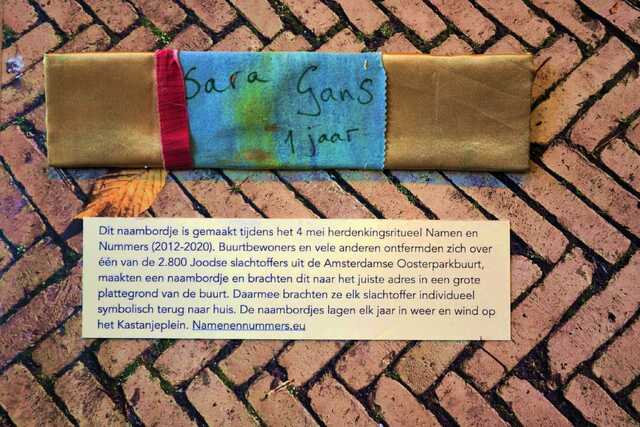 Sara Gans
1 jaar
Dit naambordje is gemaakt tijdens het 4 mei herdenkingsritueel Namen en
Nummers (2012-2020). Buurtbewoners en vele anderen ontfermden zich over
één van de 2.800 Joodse slachtoffers uit de Amsterdamse Oosterparkbuurt,
maakten een naambordje en brachten dit naar het juiste adres in een grote
plattegrond van de buurt. Daarmee brachten ze elk slachtoffer individueel
symbolisch terug naar huis. De naambordjes lagen elk jaar in weer en wind op
het Kastanjeplein. Namenennummers.eu